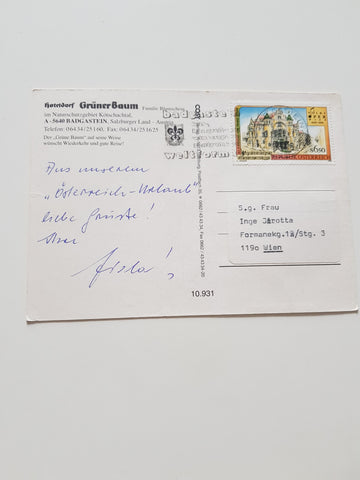 Hoteldorf GrünerBaum Familie Blumschein
im Naturschutzgebiet Kötschachtal,
A - 5640 BADGASTEIN, Salzburger Land - Austria
Telefon: 06434/25160, Fax 06434/251625
Der „Grüne Baum" auf seine Weise
wünscht Wiederkehr und gute Reise!
Aus unserem
„Österreich-Urlaub"
liebe Grüße!
8
badgaste
weltform
REPUBLIK ÖSTERREICH
S 6.50
S.g. Frau
Inge Carotta
Formanekg.12/Stg. 3
1190 Wien
10.931